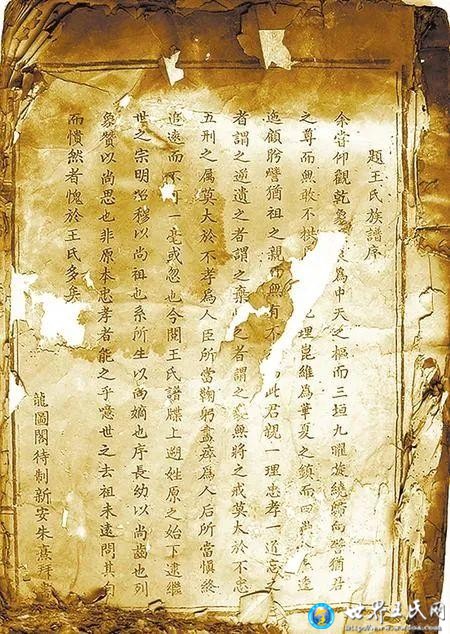 題王氏族譜序
余嘗仰觀乾象辰為中天之樞而三垣九曜旋繞歸向譬猶君
之尊而無敢不拱理崑維為華夏之鎮而四逶
迤顧盼譬猶祖之親而無有不此君親一理忠孝一道忘之
者謂之逆遺之者謂之棄之者謂之無將之戒莫大於不忠
五刑之属莫大於不孝為人臣所當鞠躬盡瘁為人后所當慎終
追遠而不一毫或忽也今閱王氏譜牒上遡姓原之始下逮繼
世之宗明昭穆以尚祖也系所生以尚嫡也序長幼以尚齒也列
象贊以尚思也非原本忠孝者能之乎噫世之去祖未遠問其
而憒然者愧於王氏多矣
龍圖閣待制新安朱熹拜
世界王氏网